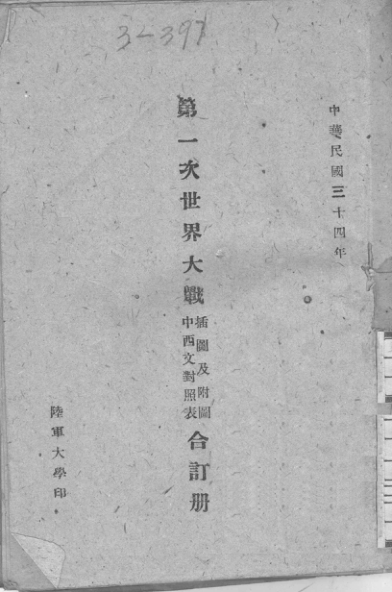 3-397
中華民國三十四年
第一次世界大戰
插圖及附圖
中西文對照表
合訂册
陸軍大學印